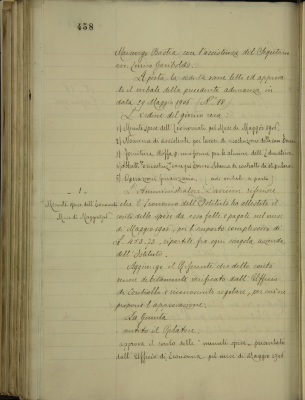 438
Marengo Bastia con l'assistenza del Segretario
Enrico Gariboldi.
Aperta la seduta viene letto ed approva-
to il verbale della precedente adunanza in
data 29 Maggio 1905 (N. 18)
L'ordine del giorno reca:
1) Minute spese dell'Economato pel Mese di Maggio 1905.
2) Nomina di assistente
3) Fornitura stoffa p. uniformi per le alunne dell'Educatorio
5) Operazioni finanziarie. (vedi verbale a parte)
- 1 -
Minute spese dell'Economato
Mese di Maggio 1905
L'Amministratore riferisce
che l'Economo dell'Istituto ha allestito il
conto delle spese da esso fatte e pagate nel mese
di Maggio 1905, per l'importo complessivo di
L. 473.73, ripartite fra ogni singola azienda
dell'Istituto.
Aggiunge il Referente che detto conto
venne debitamente verificato dall'Ufficio
di Controllo e riconosciuto regolare, per cui ne
propone l'approvazione.
La Giunta
sentito il Relatore,
approva il conto delle "minute spese" presentato
dall'Ufficio di Economia pel mese di Maggio 1905